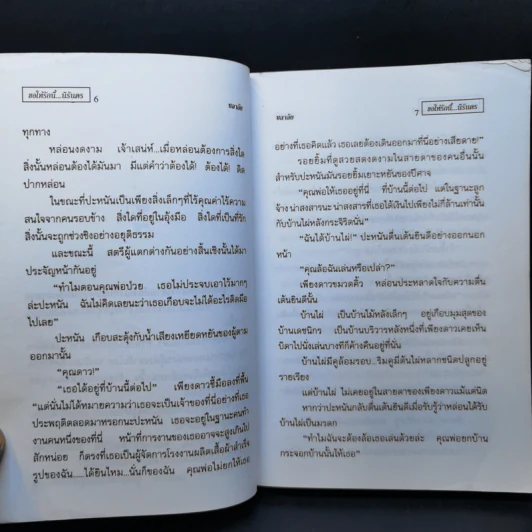 ขอให้รักนี้...นิรันดร
6
ทุกทาง
หล่อนงดงาม เจ้าเสน่ห์...เมื่อหล่อนต้องการสิ่งใด
สิ่งนั้นหล่อนต้องได้มันมา มีแต่คำว่าต้องได้! ต้องได้! ติด
ปากหล่อน
ในขณะที่ปะหนันเป็นเพียงสิ่งเล็กๆที่ไร้คุณค่าไร้ความ
สนใจจากคนรอบข้าง สิ่งใดที่อยู่ในอุ้งมือ สิ่งใดที่เป็นที่รัก
สิ่งนั้นจะถูกช่วงชิงอย่างอยุติธรรม
และขณะนี้ สตรีผู้แตกต่างกันอย่างสิ้นเชิงนั้นได้มา
ประจัญหน้ากันอยู่
"ทำไมตอนคุณพ่อป่วย เธอไม่ประจบเอาไว้มากๆ
ล่ะปะหนัน ฉันไม่คิดเลยนะว่าเธอเกือบจะไม่ได้อะไรติดมือ
ไปเลย"
ปะหนัน เกือบสะดุ้งกับน้ำเสียงเหยียดหยันของผู้ตาม
ออกมานั้น
"คุณดาว!"
"เธอได้อยู่ที่บ้านนี้ต่อไป" เพียงดาวชี้มือลงที่พื้น
"แต่นั่นไม่ได้หมายความว่าเธอจะเป็นเจ้าของที่นี่อย่างที่เธอ
ประพฤติตลอดมาหรอกนะปะหนัน เธอจะอยู่ในฐานะคนทำ
งานคนหนึ่งของที่นี่ หน้าที่การงานของเธออาจจะสูงเกินไป
สักหน่อย ก็ตรงที่เธอเป็นผู้จัดการโรงงานผลิตเสื้อผ้าสำเร็จ
รูปของฉัน.....ได้ยินไหม...นั่นก็ของฉัน คุณพ่อไม่ยกให้เธอ
7
ขอให้รักนี้...นิรันดร
อย่างที่เธอคิดแล้ว เธอเลยต้องเดินออกมาที่นี่อย่างเสียดาย!"
รอยยิ้มที่ดูสวยสดงดงามในสายตาของคนอื่นนั้น
สำหรับปะหนันมันรอยยิ้มเยาะหยันของปีศาจ
"คุณพ่อให้เธออยู่ที่นี่ ที่บ้านนี้ต่อไป แต่ในฐานะลูก
จ้าง น่าสงสารนะ น่าสงสารที่เธอได้เงินไปเพียงไม่กี่ล้านเท่านั้น
กับบ้านไผ่หลังกระจิริดนั่น"
"ฉันได้บ้านไผ่!" ปะหนันตื่นเต้นยินดีอย่างออกนอก
หน้า
"คุณล้อฉันเล่นหรือเปล่า?"
เพียงดาวขมวดคิ้ว หล่อนประหลาดใจกับความตื่น
เต้นยินดีนั้น
บ้านไผ่ เป็นบ้านไม้หลังเล็กๆ อยู่เกือบมุมสุดของ
บ้านเดชนิกร เป็นบ้านบริวารหลังหนึ่งที่เพียงดาวเคยเห็น
บิดาไปนั่งเล่นบางทีก็ค้างคืนอยู่ที่นั่น
บ้านไผ่มีคูล้อมรอบ...ริมคูมีต้นไผ่หลากชนิดปลูกอยู่
รายเรียง
แต่บ้านไผ่ ไม่เคยอยู่ในสายตาของเพียงดาวแม้แต่นิด
หากว่าปะหนันกลับตื่นเต้นยินดีเมื่อรับรู้ว่าหล่อนได้รับ
บ้านไผ่เป็นมรดก
"ทำไมฉันจะต้องล้อเธอเล่นด้วยล่ะ คุณพ่อยกบ้าน
กระจอกบ้านนั้นให้เธอ"